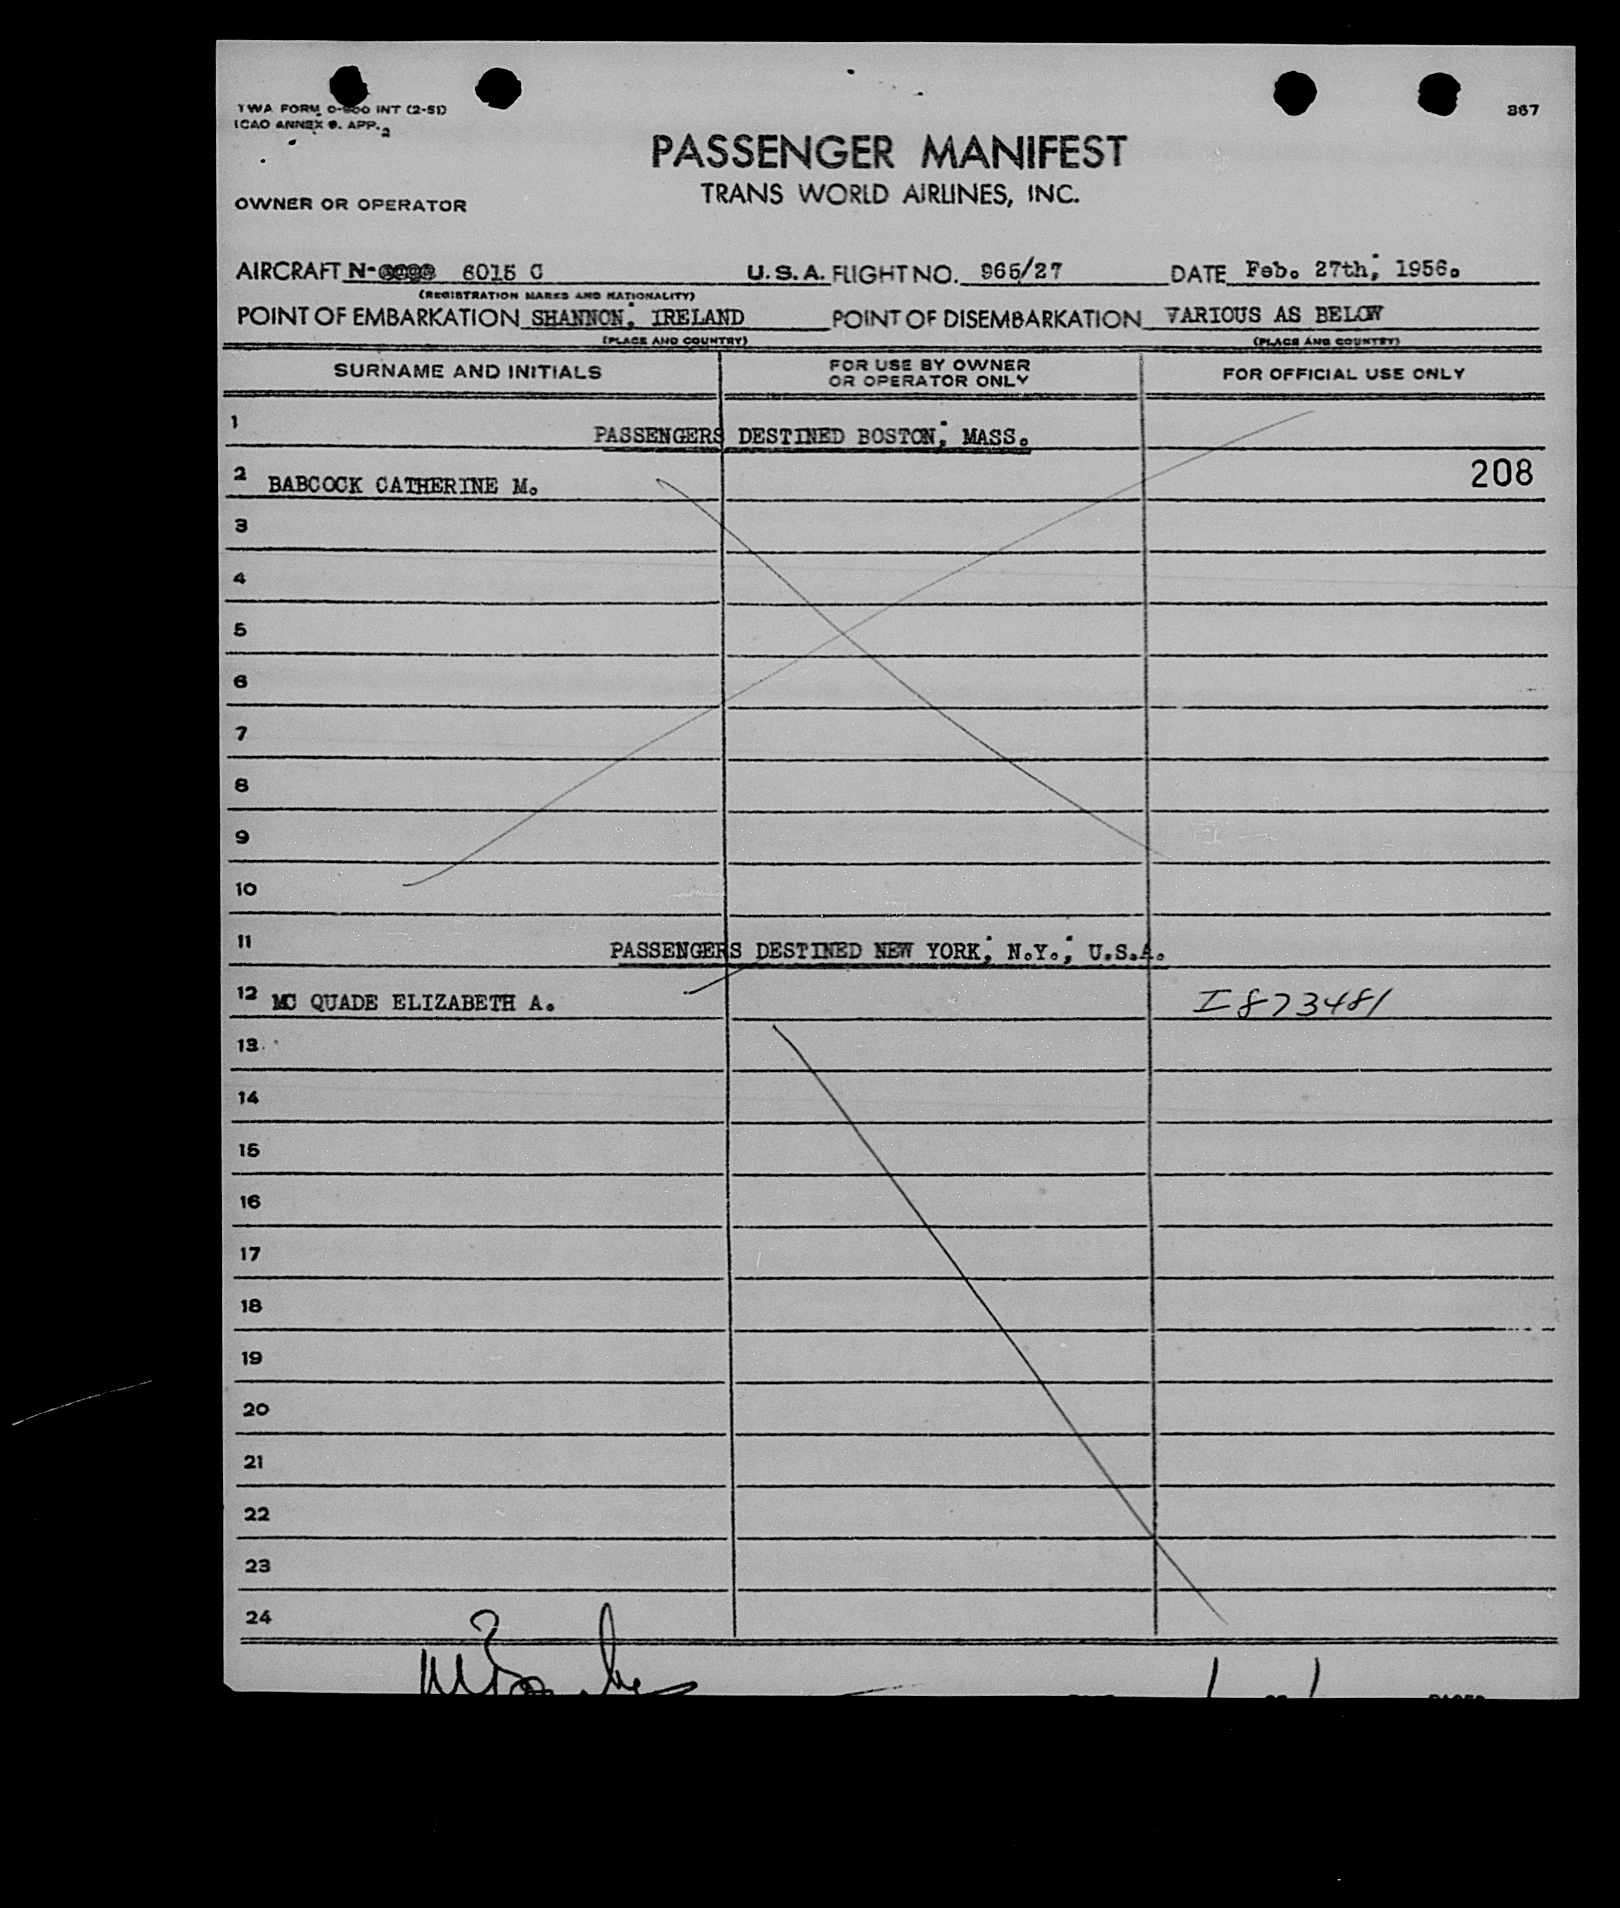 TWA FORM O- INT (2-51)
ICAO ANNEX 9. APP. 2
867
PASSENGER MANIFEST
TRANS WORLD AIRLINES, INC.
OWNER OR OPERATOR
AIRCRAFT N- 6015 C U.S.A. FLIGHT NO. 965/27 DATE Feb. 27th, 1956.
(REGISTRATION MARKS AND NATIONALITY)
POINT OF EMBARKATION SHANNON, IRELAND POINT OF DISEMBARKATION VARIOUS AS BELOW
(PLACE AND COUNTRY) (PLACE AND COUNTRY)
SURNAME AND INITIALS FOR USE BY OWNER OR OPERATOR ONLY FOR OFFICIAL USE ONLY
1 PASSENGERS DESTINED BOSTON, MASS.
2 BABCOCK CATHERINE M. 208
3
4
5
6
7
8
9
10
11 PASSENGERS DESTINED NEW YORK, N.Y., U.S.A.
12 MC QUADE ELIZABETH A. I873481
13
14
15
16
17
18
19
20
21
22
23
24
1 1